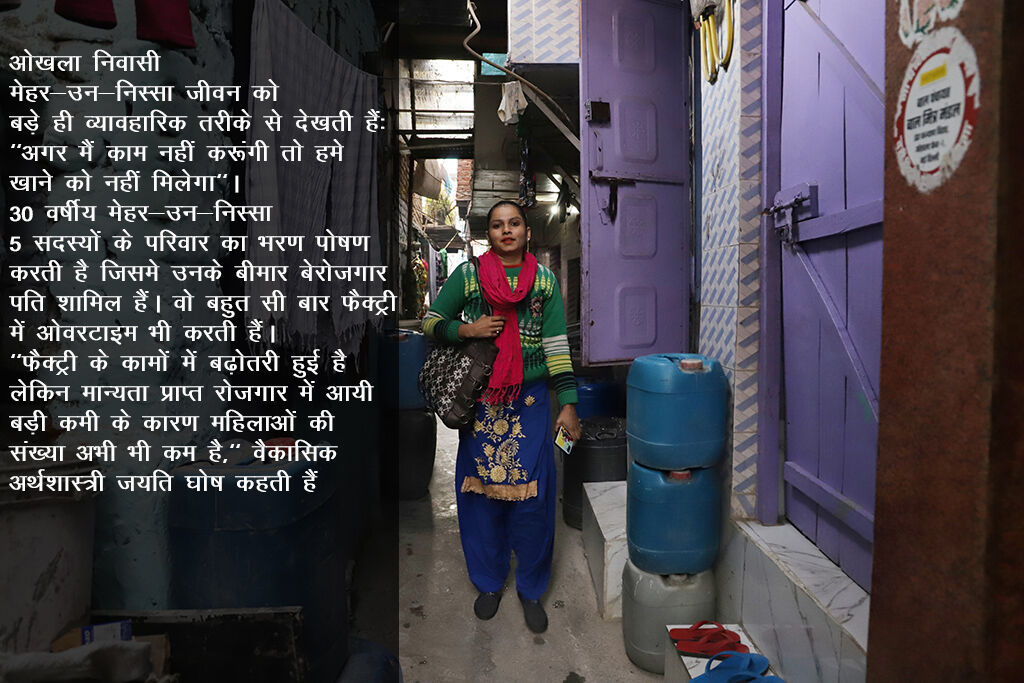 ओखला निवासी
मेहर-उन-निस्सा जीवन को
बड़े ही व्यावहारिक तरीके से देखती हैंः
"अगर मैं काम नहीं करूंगी तो हमे
खाने को नहीं मिलेगा"।
30 वर्षीय मेहर-उन-निस्सा
5 सदस्यों के परिवार का भरण पोषण
करती है जिसमे उनके बीमार बेरोजगार
पति शामिल हैं। वो बहुत सी बार फैक्ट्री
में ओवरटाइम भी करती हैं।
"फैक्ट्री के कामों में बढ़ोतरी हुई है
लेकिन मान्यता प्राप्त रोजगार में आयी
बड़ी कमी के कारण महिलाओं की
संख्या अभी भी कम है," वैकासिक
अर्थशास्त्री जयति घोष कहती हैं
बाल पंचायत
बाल मित्र मंडल